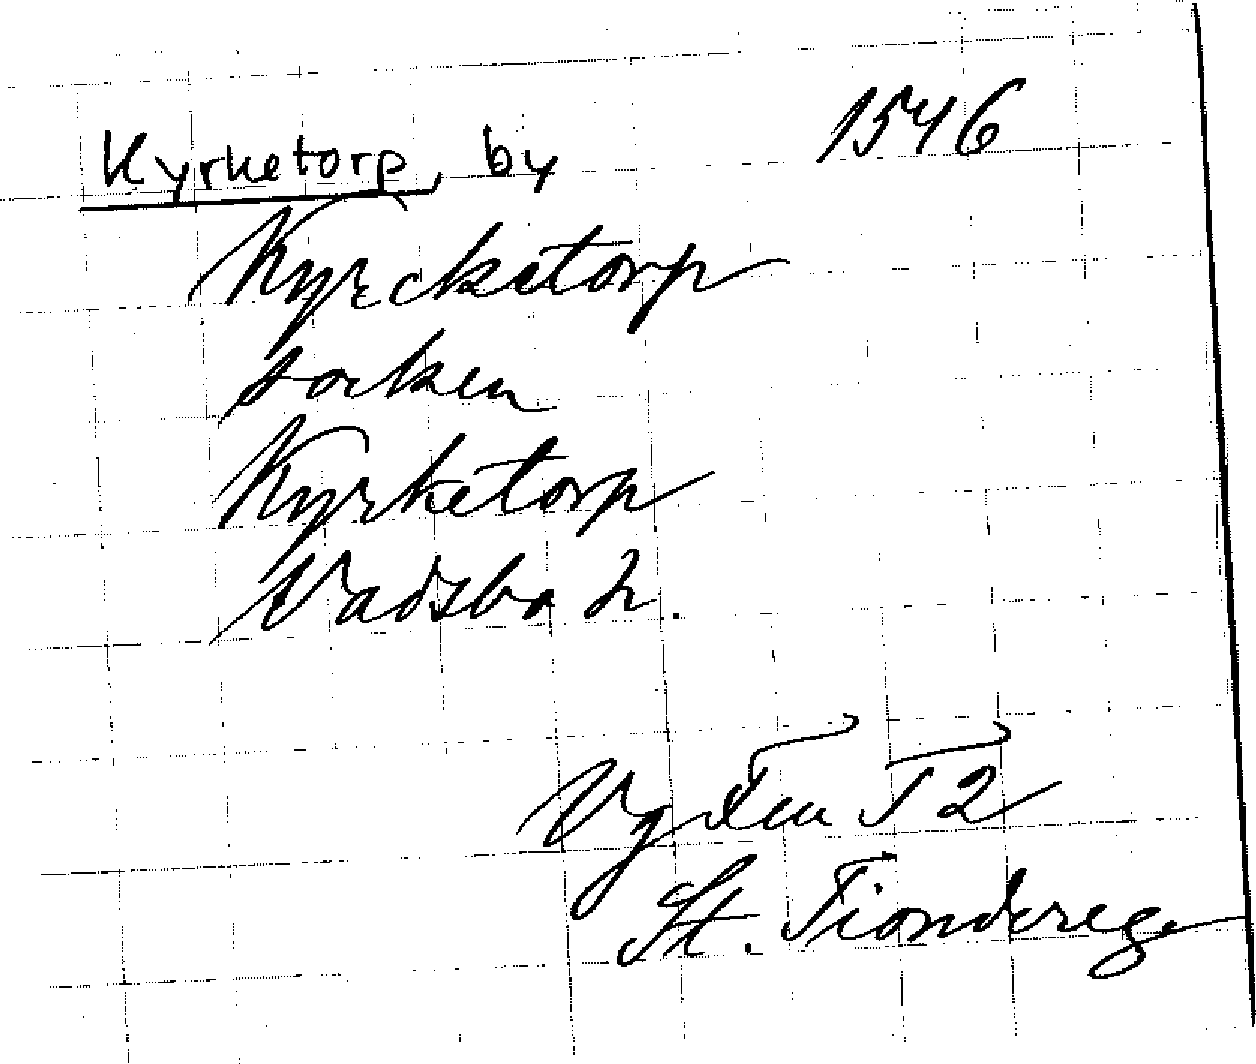 Kyrketorp, by 1546
Kyrcketorp
socken
Kyrketorp
Vadsbo h.
Vg Fru T2
St. Tiondereg